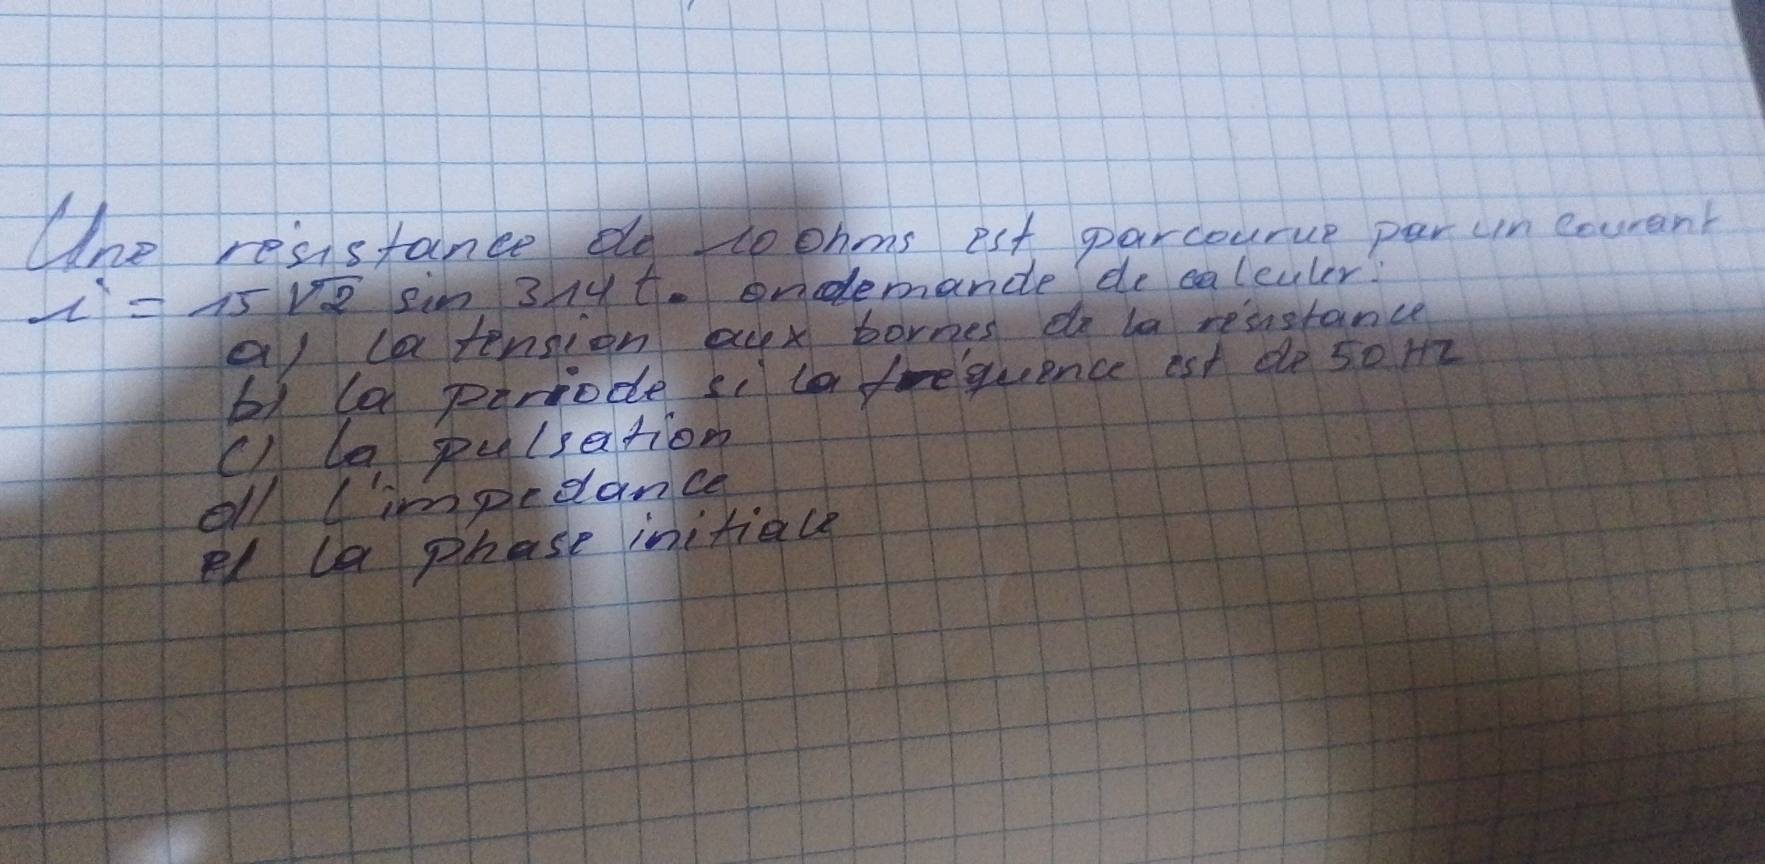 Une résistance de 10 ohms est parcourue par un courant
i = 15√2 sin 314t. on demande de calculer:
a) la tension aux bornes de la résistance
b) la periode si la fréquence est de 50 Hz
c) la pulsation
d) l'impedance
e) la phase initiale